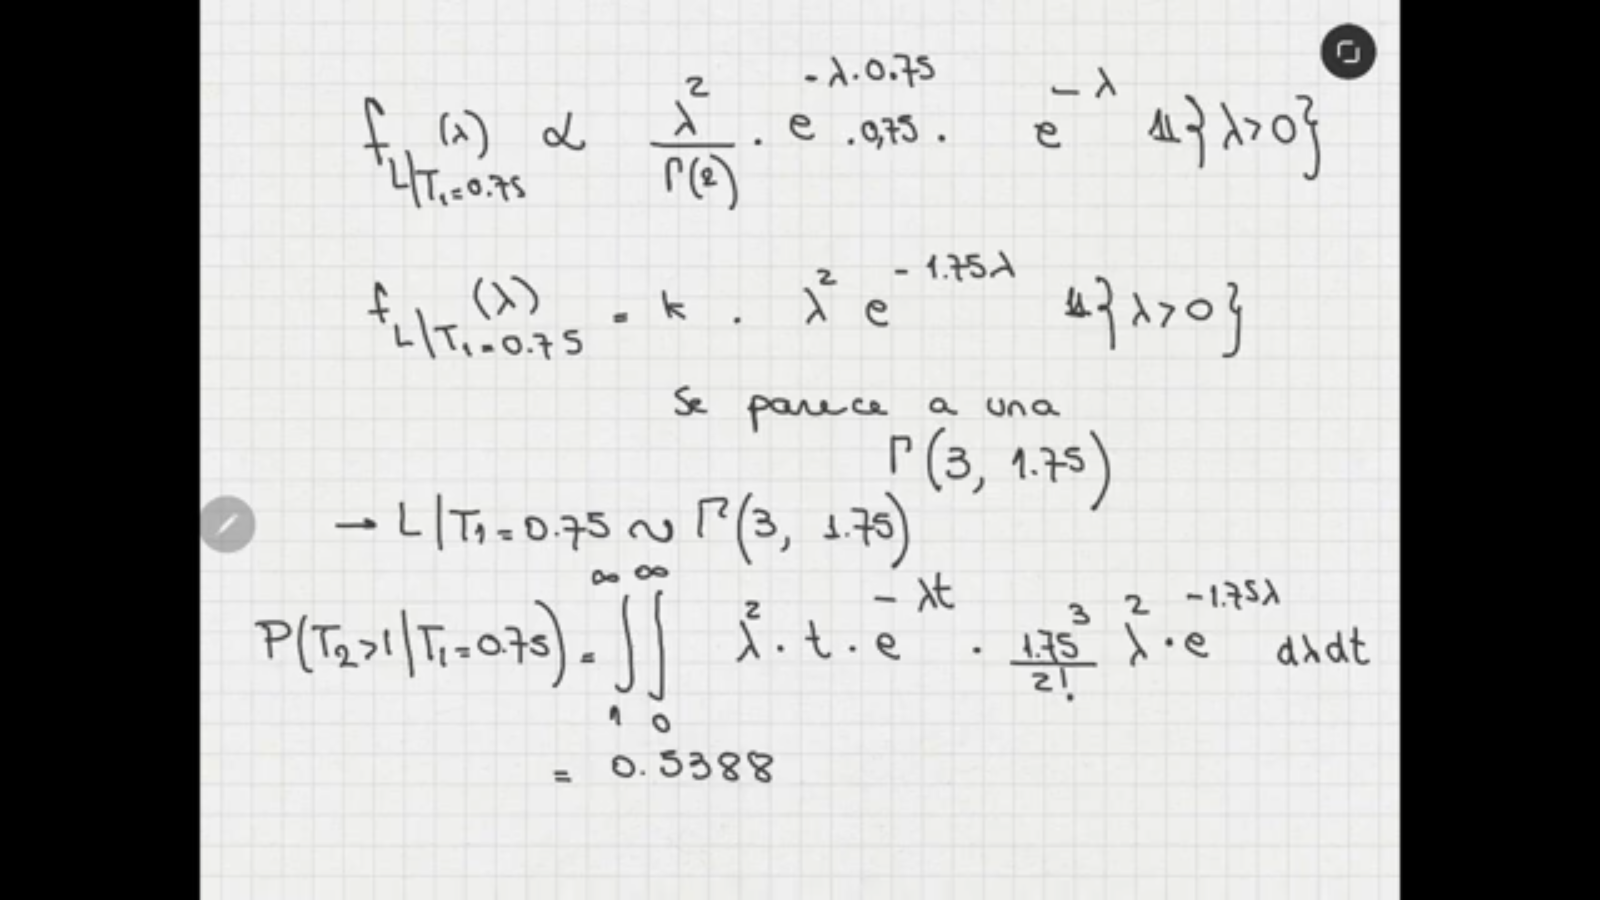 f_{L|T₁=0.75}(λ) ∝ λ²/Γ(2) · e^{-λ·0.75} · 0,75 · e^{-λ} 𝟙{λ>0}
f_{L|T₁=0.75}(λ) = k · λ² e^{-1.75λ} 𝟙{λ>0}
Se parece a una
Γ(3, 1.75)
→ L|T₁=0.75 ~ Γ(3, 1.75)
P(T₂>1|T₁=0.75) = ∫₁^∞ ∫₀^∞ λ² · t · e^{-λt} · 1.75³/2! λ² · e^{-1.75λ} dλdt
= 0.5388